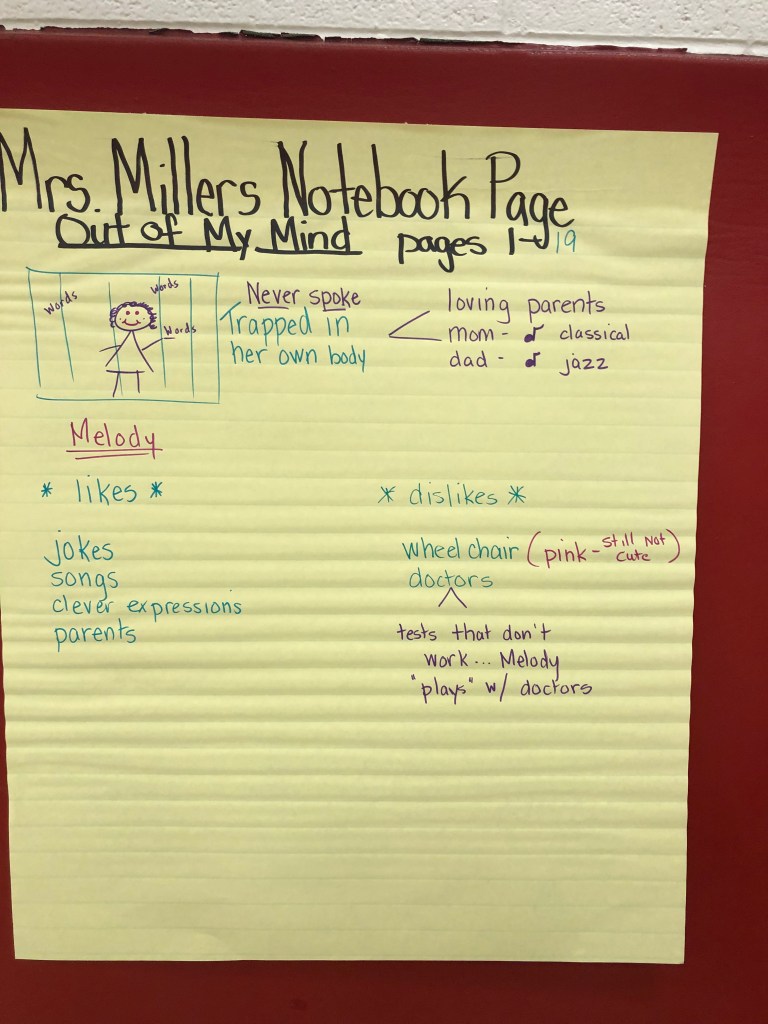 Mrs. Millers Notebook Page
Out of My Mind pages 1→19
Words
Words
Words
Never spoke
Trapped in
her own body
loving parents
mom - ♪ classical
dad - ♪ jazz
Melody
* likes *
jokes
songs
clever expressions
parents
* dislikes *
wheel chair (pink - still Not cute)
doctors
tests that don't
work... Melody
"plays" w/ doctors